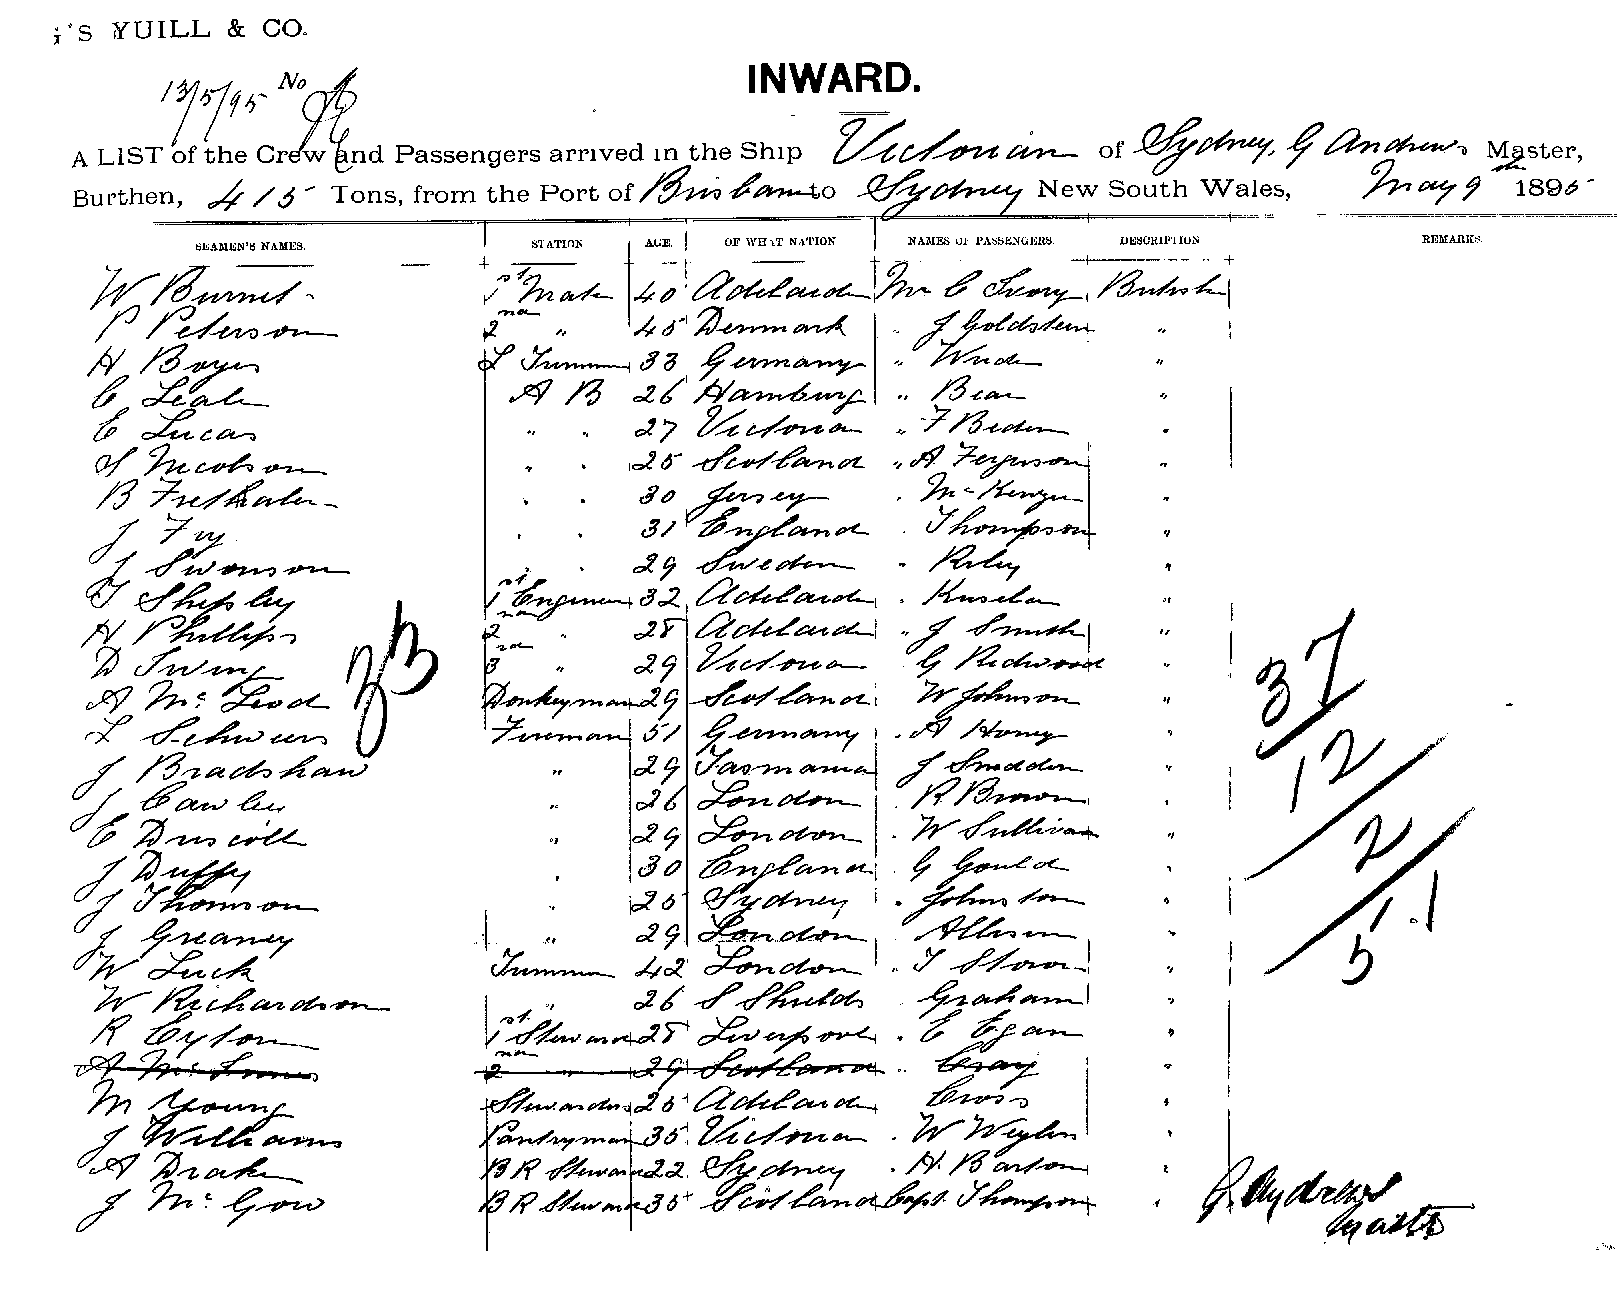 G'S YUILL & CO.
13/5/95 No
INWARD.
A LIST of the Crew and Passengers arrived in the Ship Victorian of Sydney, G Andrews Master,
Burthen, 415 Tons, from the Port of Brisbane to Sydney New South Wales, May 9th 1895
SEAMEN'S NAMES. STATION AGE. OF WHAT NATION NAMES OF PASSENGERS. DESCRIPTION REMARKS.
W Burnet 1st Mate 40 Adelaide Mr C Ivory British
P Peterson 2nd " 45 Denmark " J Goldstein "
H Boyes L Trimmer 33 Germany " Wade "
C Leale A B 26 Hamburg " Bear "
E Lucas " " 27 Victoria " F Beden "
S Nicolson " " 25 Scotland " A Ferguson "
B Frethaler " " 30 Jersey " McKenzie "
J Fry " " 31 England " Thompson "
J Swanson " " 29 Sweden " Riley "
T Shepley 1st Engineer 32 Adelaide "
H Phillips 2nd " 28 Adelaide " J Smith "
D Ewing 3rd " 29 Victoria G Redwood "
A McLeod Donkeyman 29 Scotland W Johnson "
L Schwers Fireman 51 Germany " A Honey "
J Bradshaw " 29 Tasmania J Snedden "
J Cawley " 26 London " R Brown "
E Driscoll " 29 London " W Sullivan "
J Duffy " 30 England " G Gould "
J Thomson " 25 Sydney " Johnston "
J Greaney " 29 London Allison "
W Luck Trimmer 42 London " T Stow "
W Richardson " 26 S Shields Graham "
R Eyton 1st Steward 28 Liverpool " E Egan "
A McInnes 2nd " 29 Scotland " Gray "
M Young Stewardess 25 Adelaide Cross "
J Williams Pantryman 35 Victoria " W Weylin "
A Drake B R Steward 22 Sydney " H. Barton "
J McGow B R Steward 35 Scotland Capt. Thompson "
33
37
12
2
1.1
5
G. Andrews
Master